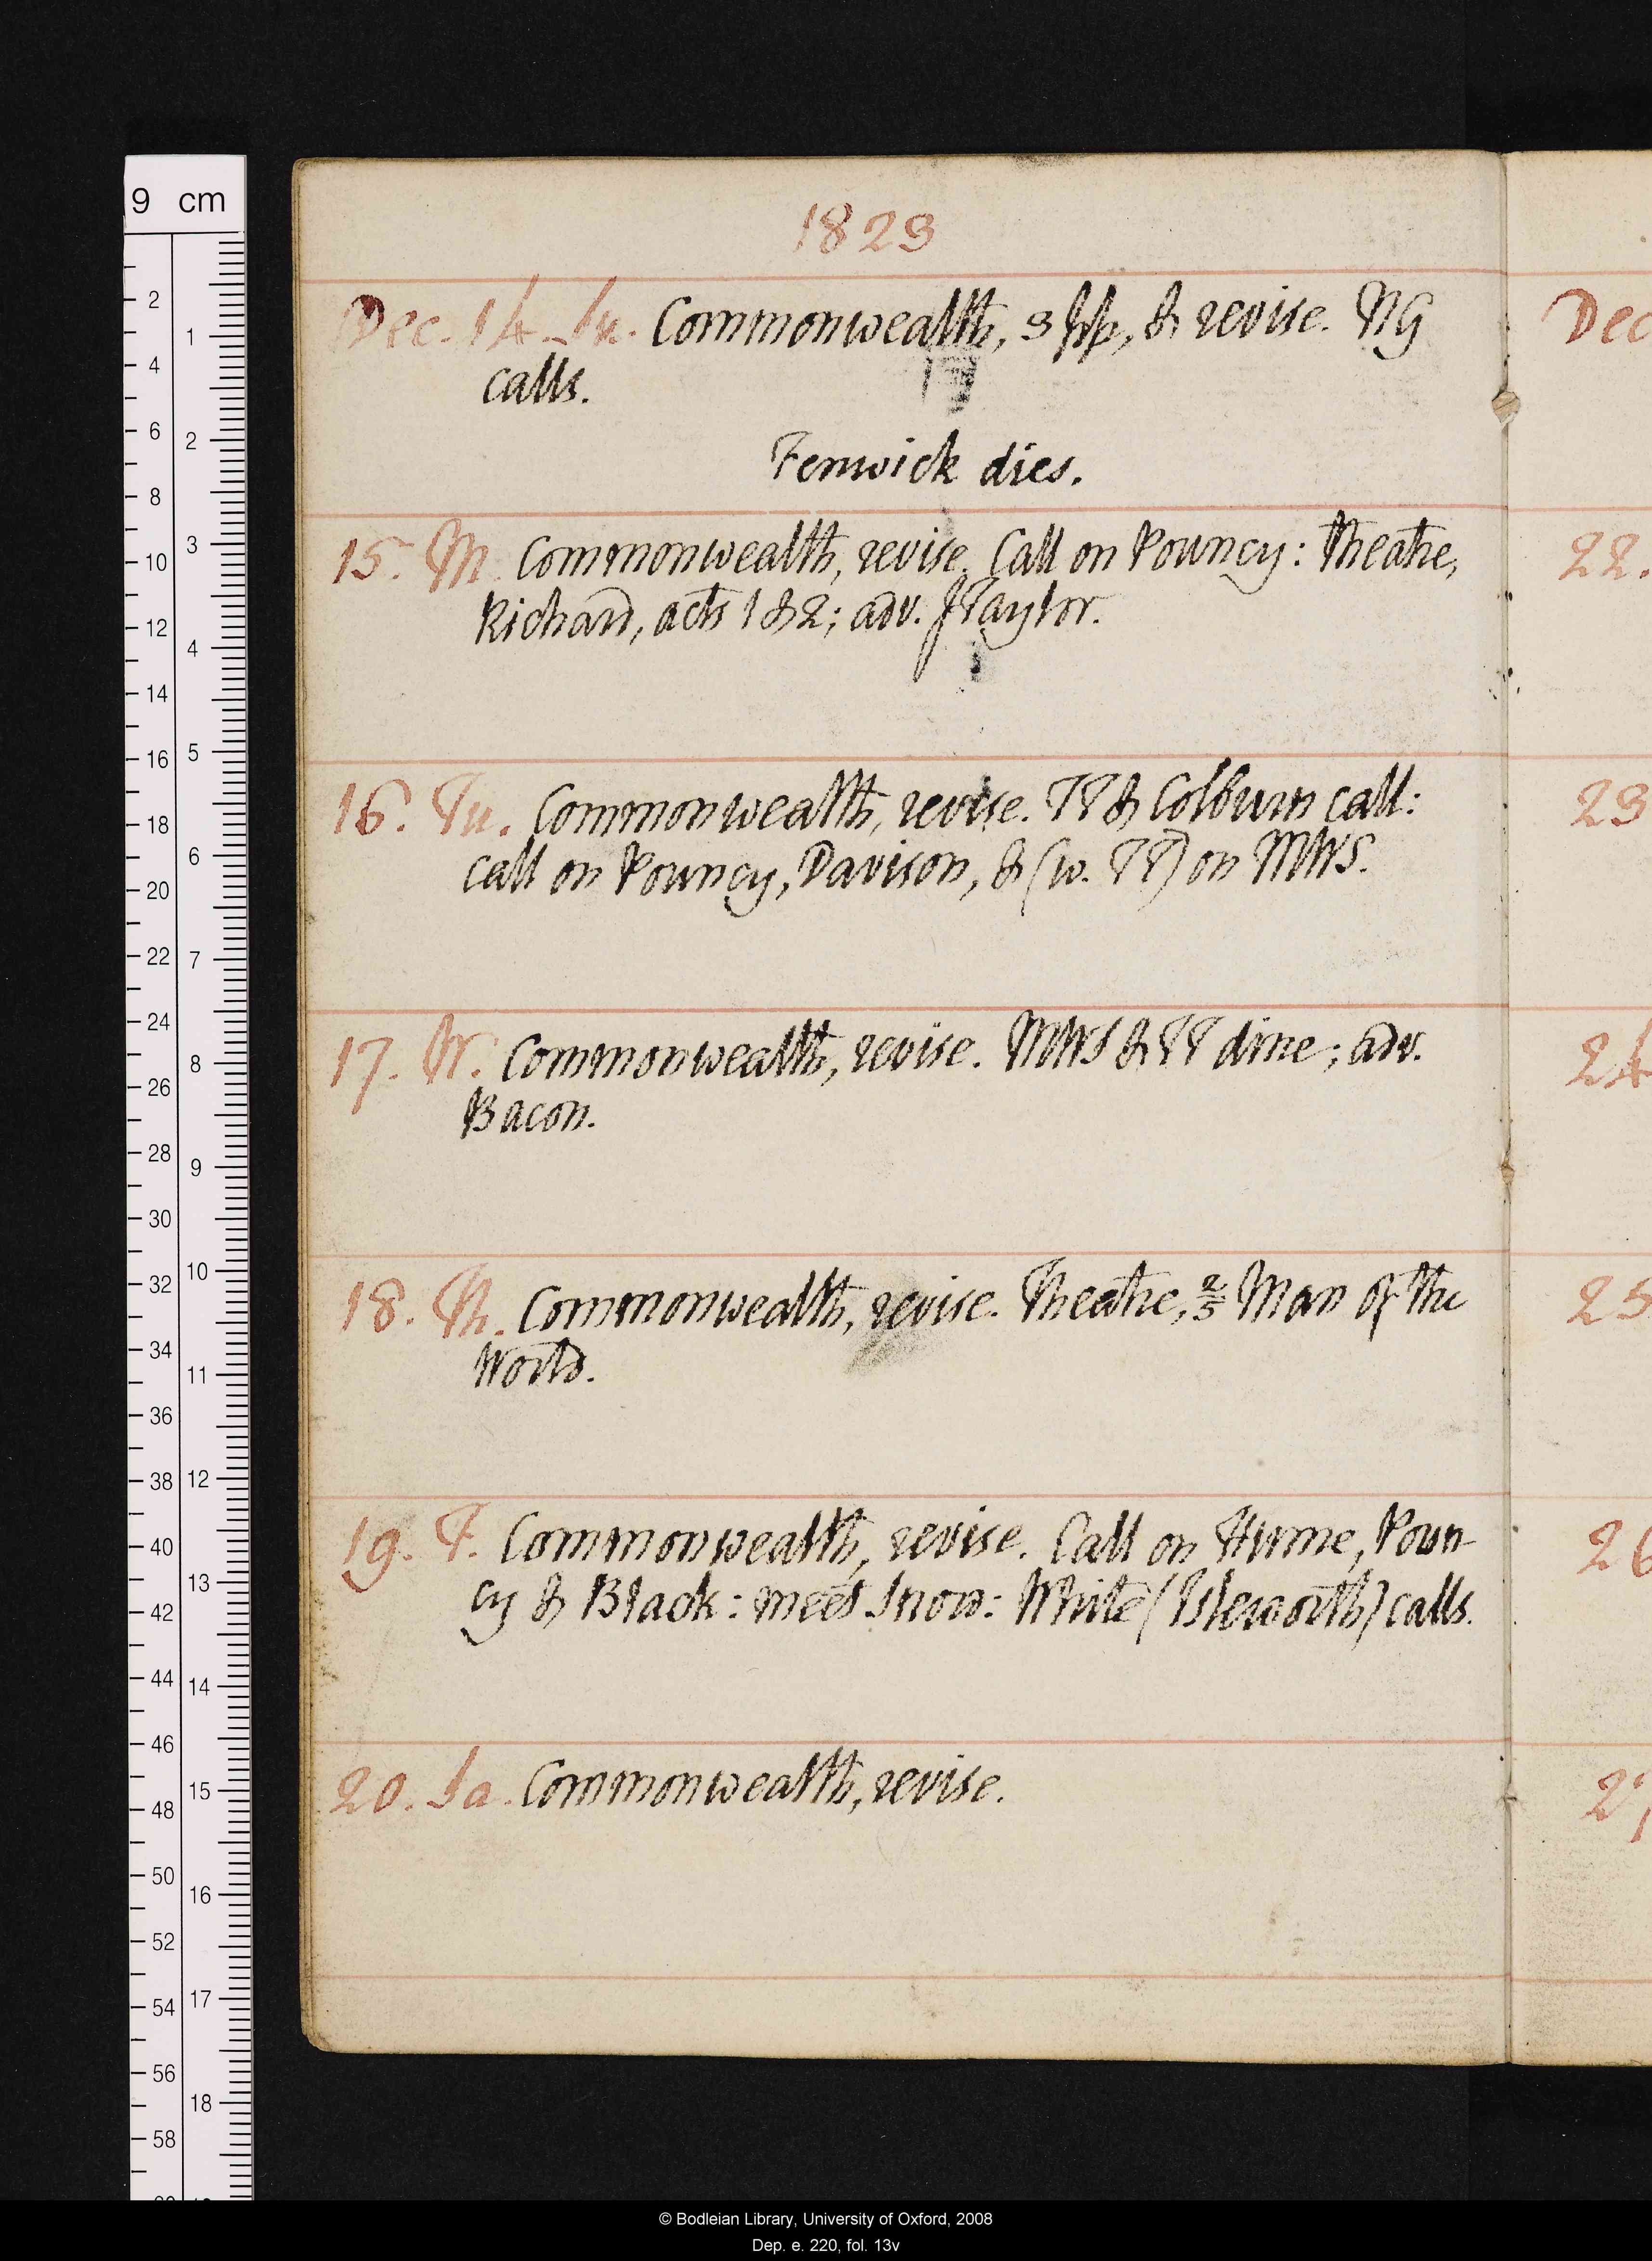 9 cm
1823
Dec. 14. Su. Commonwealth, 3 pp, & revise. NG
calls.
Fenwick dies.
15. M. Commonwealth, revise. Call on Pouncy: theatre,
Richard, acts 1 & 2; adv. JTaylor.
16. Tu. Commonwealth, revise. TT & Colburn call:
call on Pouncy, Davison, & (w. TT) on MWS.
17. W. Commonwealth, revise. MWS & TT dine; adv.
Bacon.
18. Th. Commonwealth, revise. Theatre, 2/5 Man of the
World.
19. F. Commonwealth, revise. Call on Hume, Poun-
cy & Black: meet Snow: White (Isleworth) calls.
20. Sa. Commonwealth, revise.
Dec
22.
23
24
25
26
27
© Bodleian Library, University of Oxford, 2008
Dep. e. 220, fol. 13v